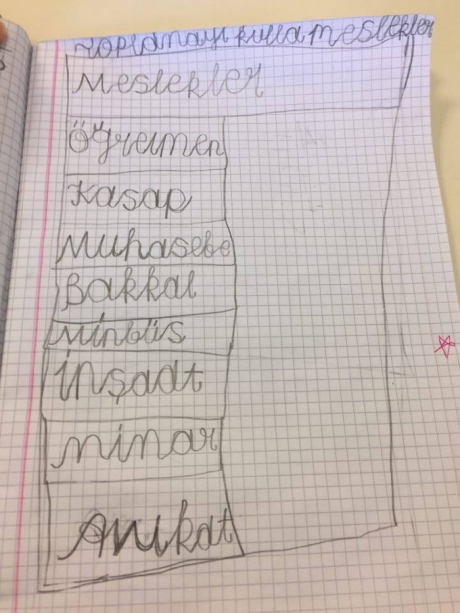 toplamayı kulla meslekler
Meslekler
Öğreimen
Kasap
Muhasebe
Bakkal
Minbüs
İnşadt
Mimar
Anukat